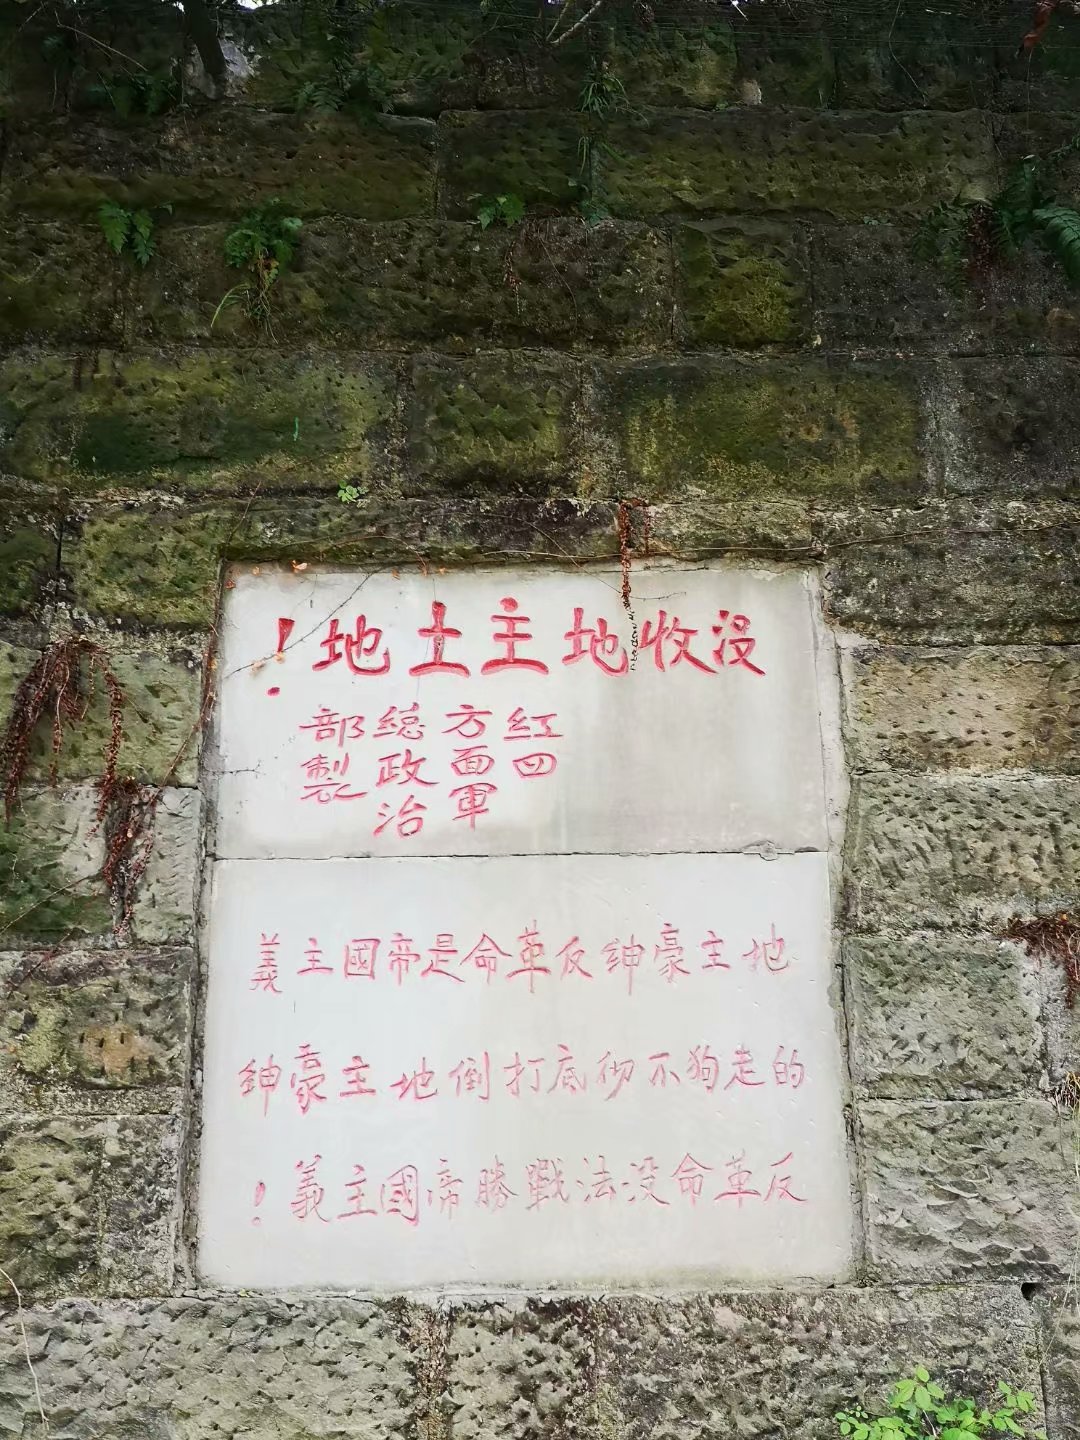 没收地主土地!
红四
方面軍
總政治
部製
地主豪紳反革命是帝國主義
的走狗不彻底打倒地主豪紳
反革命没法戰勝帝國主義!